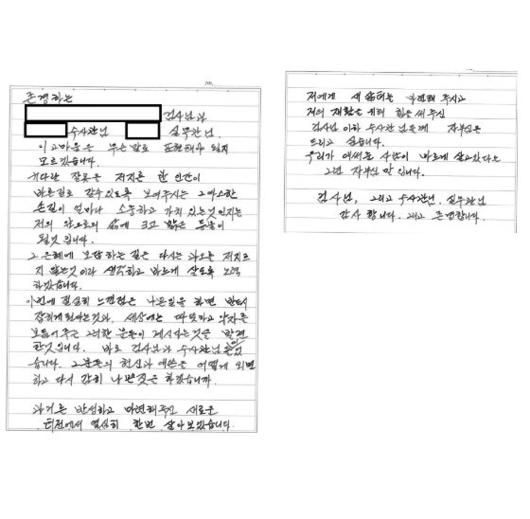 존경하는
검사님과
수사관님 실무관님.
이 고마움은 무슨 말로 표현해야 될지
모르겠습니다.
커다란 잘못은 저지른 한 인간이
바른길로 갈수 있도록 보여주시는 그 따스한
손길이 얼마나 소중하고 가치 있는것인지는
저의 앞으로의 삶에 크고 밝은 등불이
될것 입니다.
그 은혜에 보답하는 길은 다시는 과오를 저지르
지 않는것이라 생각하고 바르게 살도록 노력
하겠습니다.
이번에 절실히 느낀점은 나쁜일을 하면 반드시
잡히게 된다는것과, 세상에는 따뜻하고 약자를
보듬어주는 그러한 분들이 계시다는것을 발견
한것입니다. 바로 검사님과 수사관님
습니다. 그분들의 헌신과 애쓴은 어떻게 외면
하고 다시 감히 나쁜것을 하겠습니까.
과거를 반성하고 마련해주신 새로운
터전에서 열심히 한번 살아보겠습니다.
저에게 새 삶터를 마련해 주시고
저의 재활을 위해 힘을 써 주신
검사님 이하 수사관님들께 자부심을
드리고 싶습니다.
우리가 애써준 사람이 바르게 살고있다는
그런 자부심 말 입니다.
검사님, 그리고 수사관님, 실무관님
감사 합니다. 그리고 존경합니다.